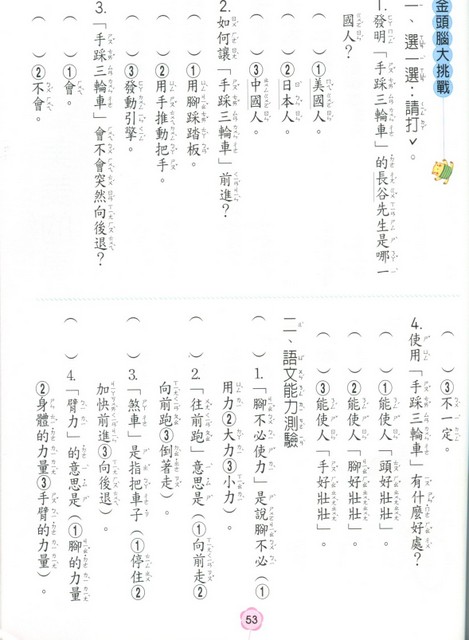 金頭腦大挑戰
一、選一選：請打✓。
1. 發明「手踩三輪車」的長谷先生是哪一
國人？
（　）①美國人。
（　）②日本人。
（　）③中國人。
2. 如何讓「手踩三輪車」前進？
（　）①用腳踩踏板。
（　）②用手推動把手。
（　）③發動引擎。
3. 「手踩三輪車」會不會突然向後退？
（　）①會。
（　）②不會。
（　）③不一定。
4. 使用「手踩三輪車」有什麼好處？
（　）①能使人「頭好壯壯」。
（　）②能使人「腳好壯壯」。
（　）③能使人「手好壯壯」。
二、語文能力測驗
（　）1.「腳不必使力」是說腳不必（①
用力②大力③小力）。
（　）2.「往前跑」意思是（①向前走②
向前跑③倒著走）。
（　）3.「煞車」是指把車子（①停住②
加快前進③向後退）。
（　）4.「臂力」的意思是（①腳的力量
②身體的力量③手臂的力量）。
53